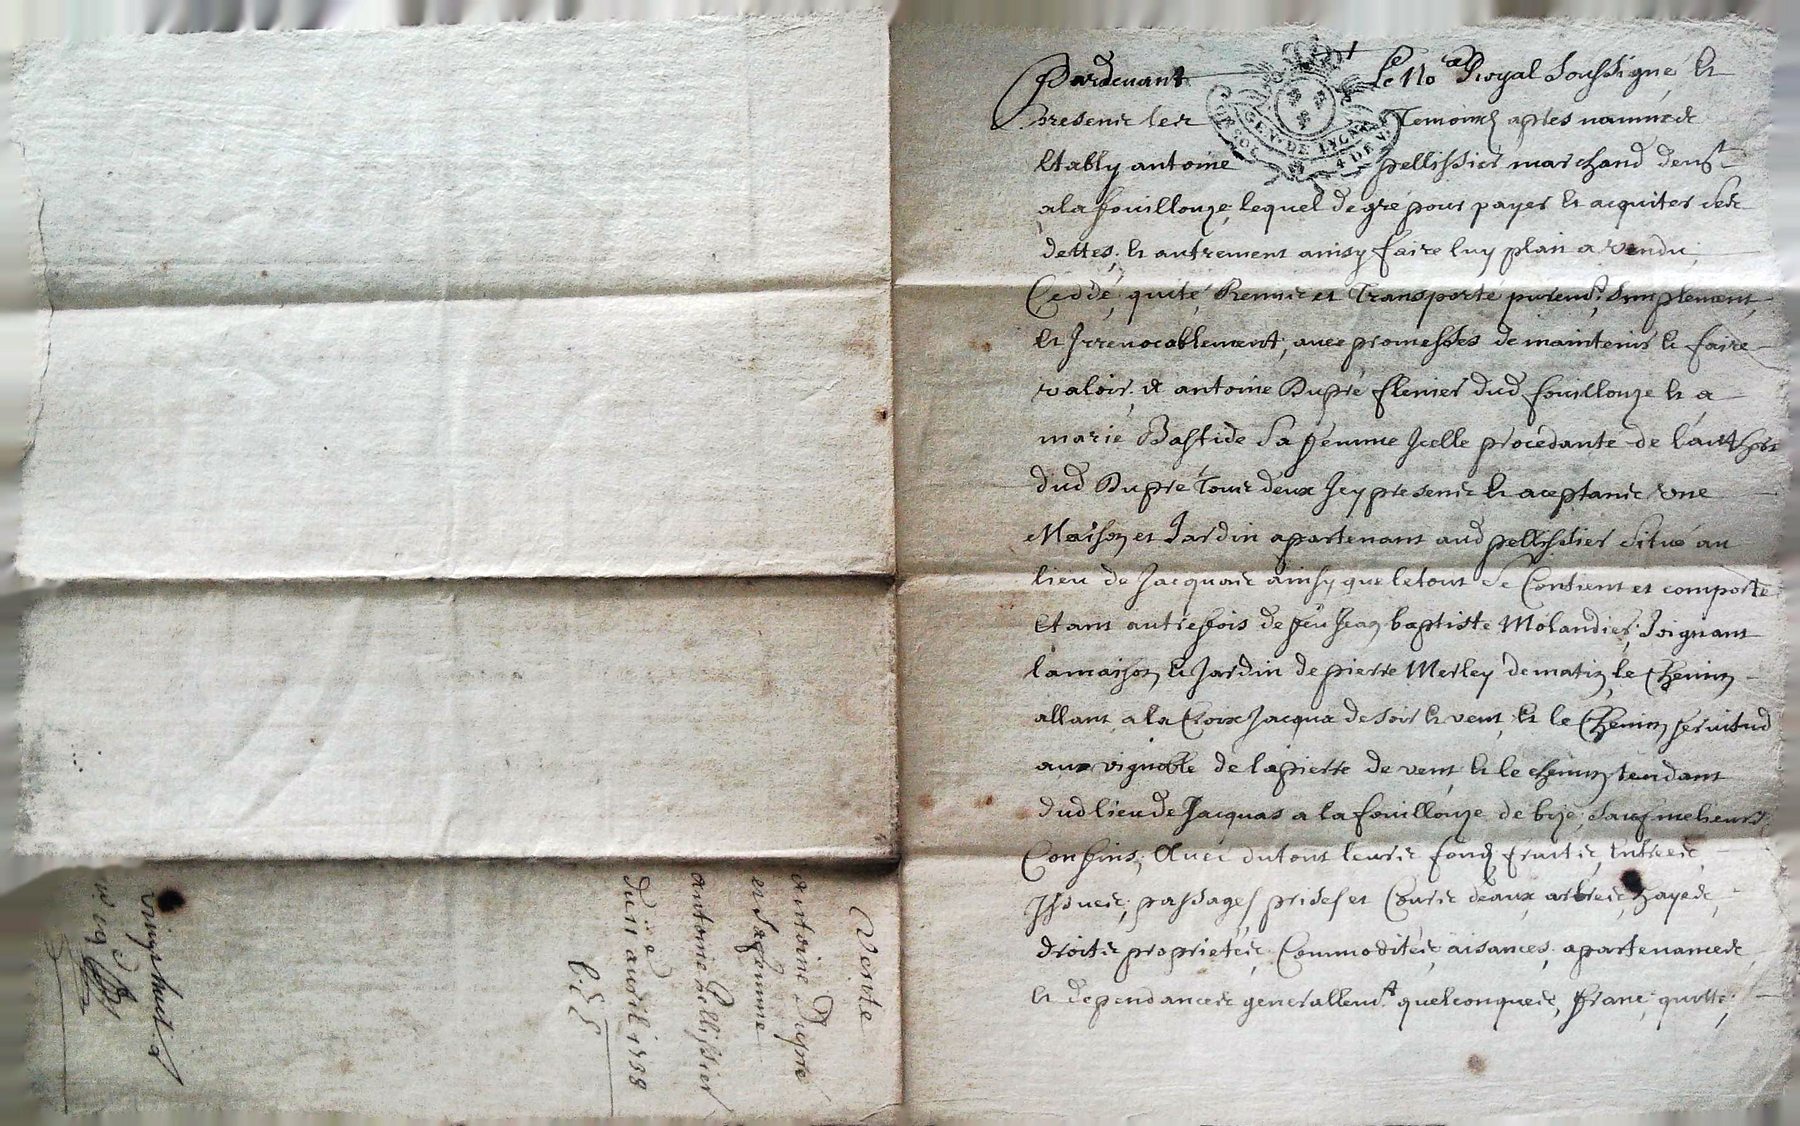 Pardevant Le No.re Royal soussigné et
presents les Temoins apres nommés
Etably antoine pellissier marchand demt
a la fouillouze, lequel de gré pour payer et acquiter ses
dettes, et autrement ainsy faire luy plait a vendu,
Ceddé, quité, Remis et Transporté puremt, simplement,
et Irrevocablement, avec promesses de maintenir et faire
valoir, a antoine Dupré dud fouillouze et a
marie Bastide sa femme Icelle procedante de l'authté
dud Dupré Tous deux Icy presents et aceptants une
Maison et Jardin apartenant aud pellissier situé au
lieu de Jacquas ainsy que le tout se Contient et comporte
Etant autrefois de feu Jean baptiste Molandier, Joignant
la maison et Jardin de pierre Merley de matin, le Chemin
allant a la Croix Jacquas de soir et vent, et le Chemin servitud
aux vignoble de la pierre de vent, et le chemin tendant
dud lieu de Jacquas a la fouillouze de bize, sauf meilieurs
Confins, Avec du tout leurs fond, fruits, Entrees,
Issues, passages, prises et Cours deaux, arbres, hayes,
droits, proprietés, Commodités, aisances, apartenances
et dependances generallemt quelconques, franc, quitte,
GEN. DE LYON
4 DEN
Vente
antoine Dupré
et sa femme
antoine Pellissier
du 11 avril 1738
vingt huit